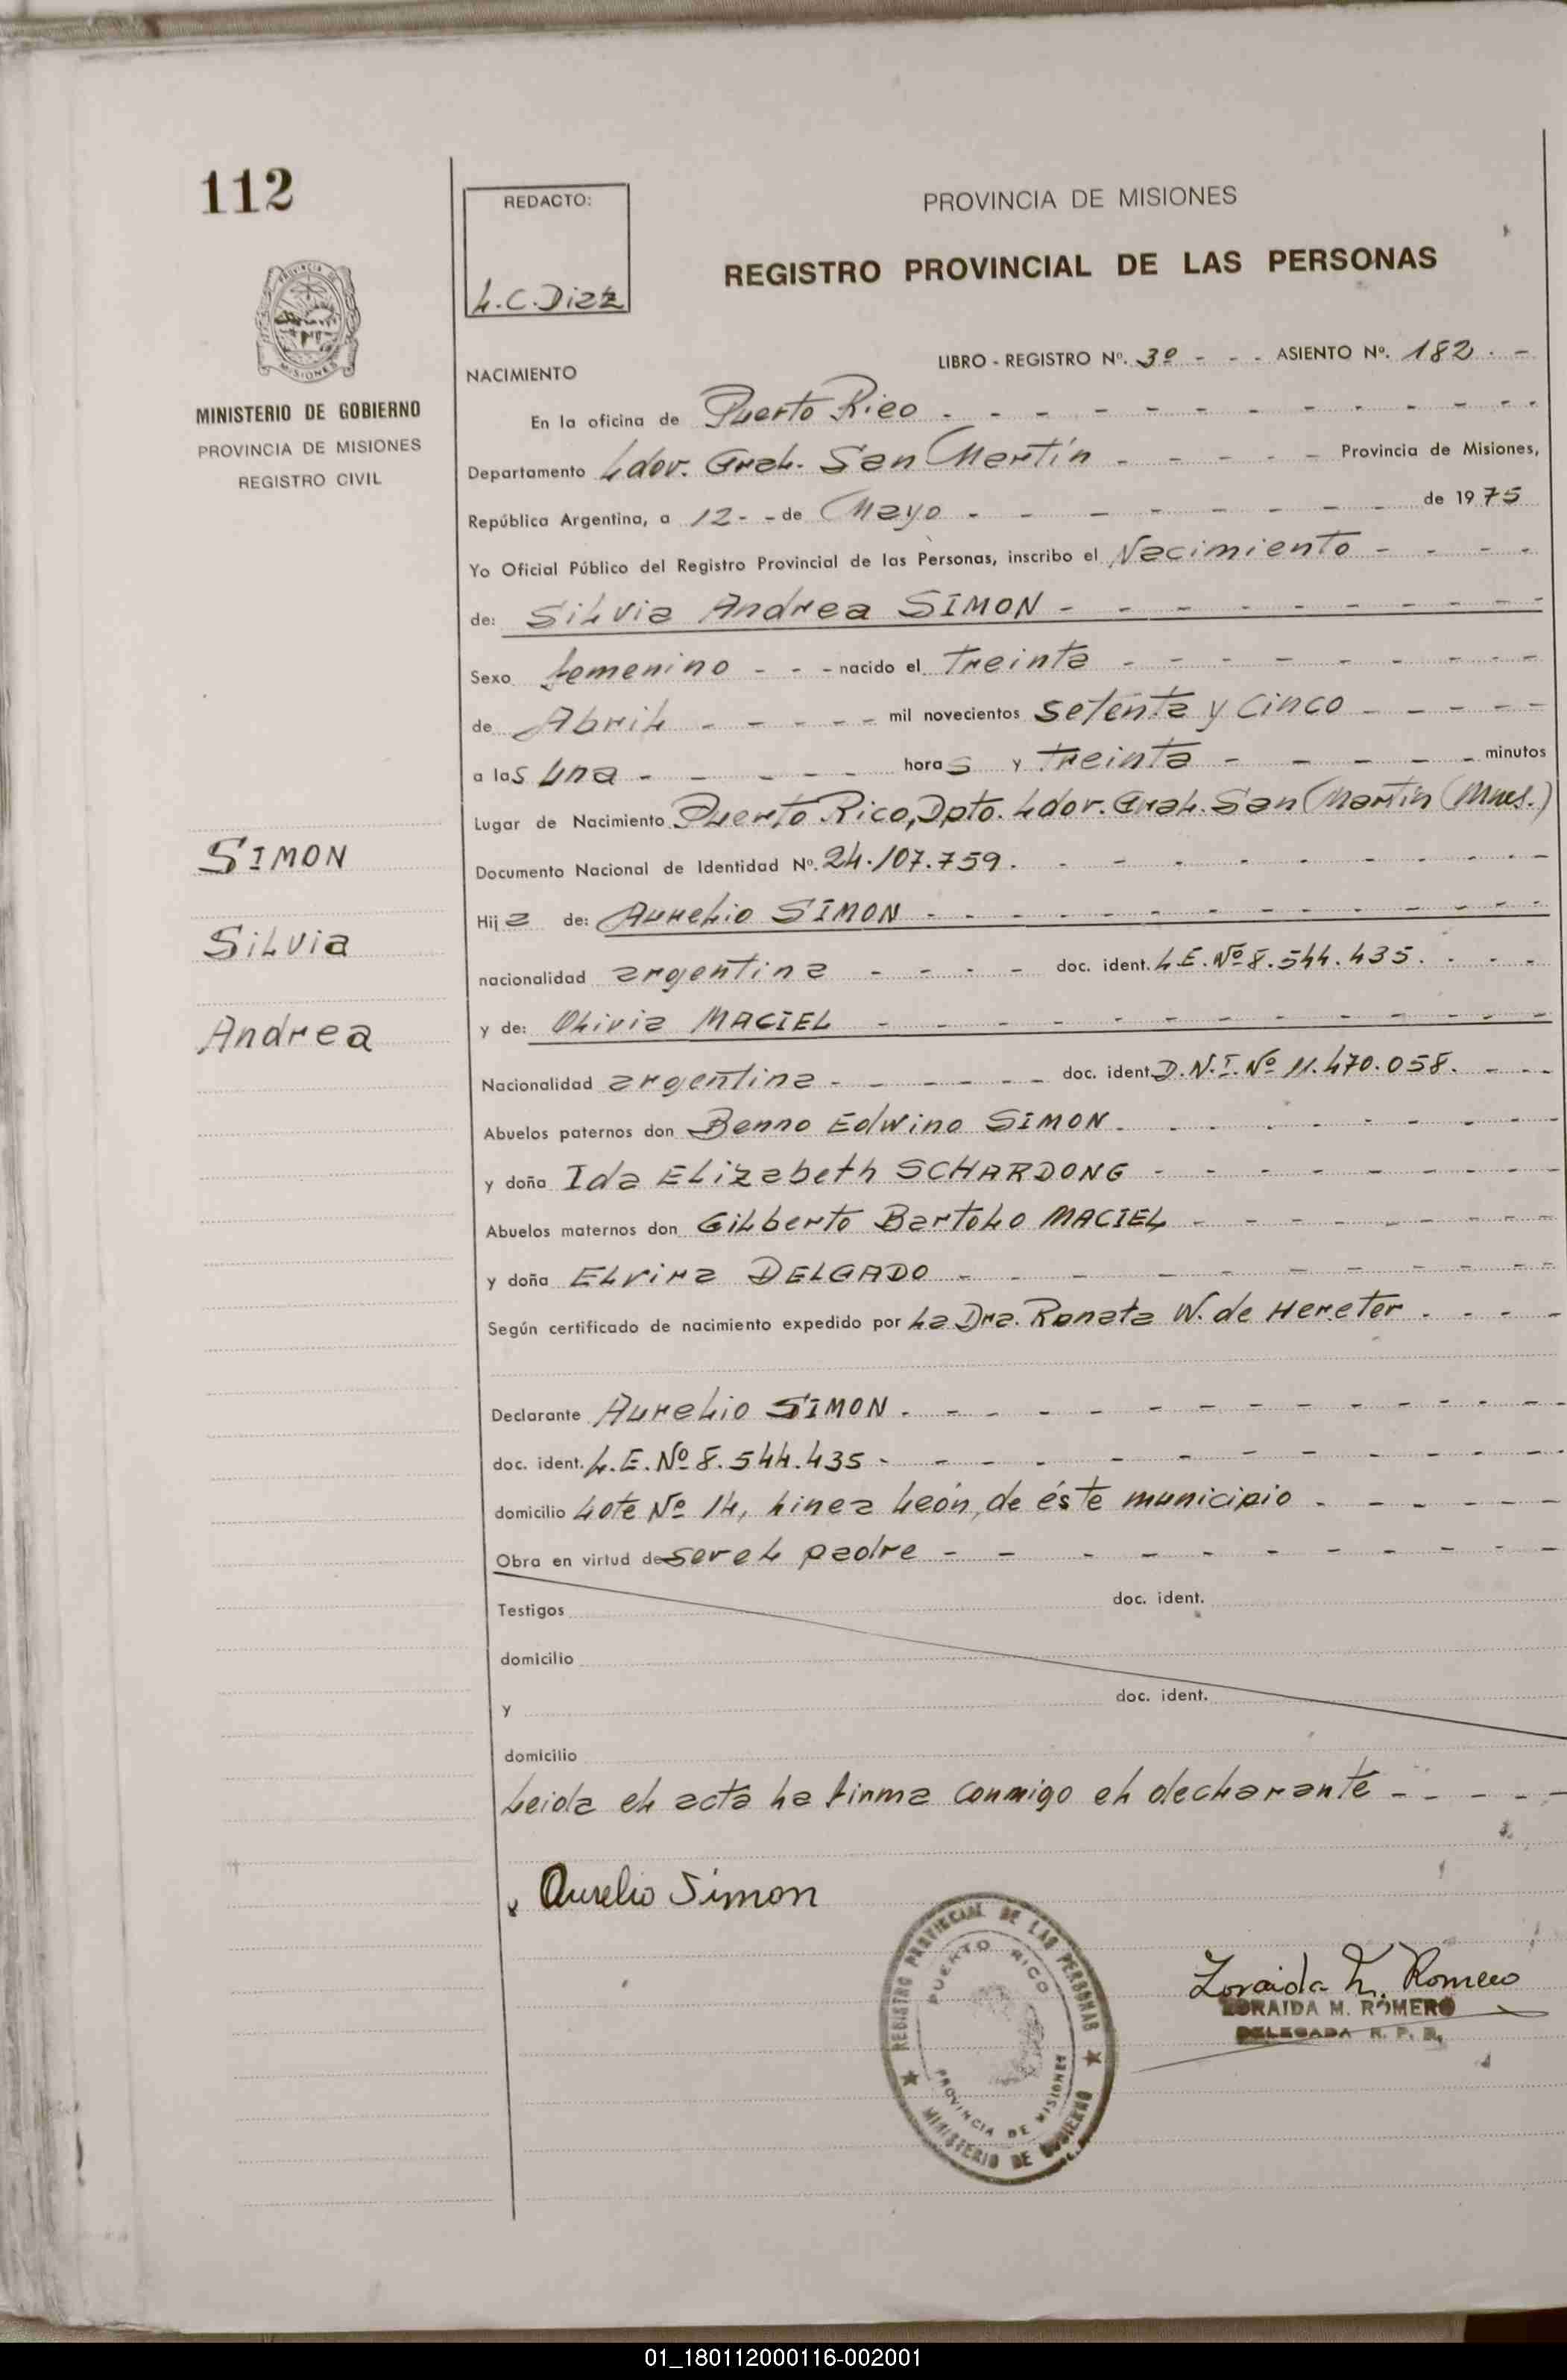 112
REDACTO:
L.C. Diaz
PROVINCIA DE MISIONES
REGISTRO PROVINCIAL DE LAS PERSONAS
PROVINCIA DE MISIONES
MINISTERIO DE GOBIERNO
PROVINCIA DE MISIONES
REGISTRO CIVIL
SIMON
Silvia
Andrea
LIBRO - REGISTRO Nº. 3º - - - ASIENTO Nº. 182. -
NACIMIENTO
En la oficina de Puerto Rico
Departamento Ldor. Gral. San Martín Provincia de Misiones,
República Argentina, a 12 - - de Mayo de 1975
Yo Oficial Público del Registro Provincial de las Personas, inscribo el Nacimiento
de: Silvia Andrea SIMON
Sexo femenino - - - nacido el Treinta
de Abril mil novecientos setenta y cinco
a las una horas y treinta minutos
Lugar de Nacimiento Puerto Rico, Dpto. Ldor. Gral. San Martín (Mnes.)
Documento Nacional de Identidad Nº. 24.107.759.
Hija de: Aurelio SIMON
nacionalidad argentina doc. ident. L.E. Nº 8.544.435.
y de: Olivia MACIEL
Nacionalidad argentina doc. ident. D.N.I. Nº 11.470.058.
Abuelos paternos don Benno Edwino SIMON
y doña Ida Elizabeth SCHARDONG
Abuelos maternos don Gilberto Bartolo MACIEL
y doña Elvira DELGADO
Según certificado de nacimiento expedido por la Dra. Renata W. de Hereter
Declarante Aurelio SIMON
doc. ident. L.E. Nº 8.544.435
domicilio Lote Nº 14, linea León, de éste municipio
Obra en virtud de ser el padre
Testigos doc. ident.
domicilio
y doc. ident.
domicilio
Leida el acta la firma conmigo el declarante
Aurelio Simon
REGISTRO PROVINCIAL DE LAS PERSONAS
PUERTO RICO
PROVINCIA DE MISIONES
MINISTERIO DE GOBIERNO
Zoraida M. Romero
ZORAIDA M. ROMERO
DELEGADA R. P. P.
01_180112000116-002001